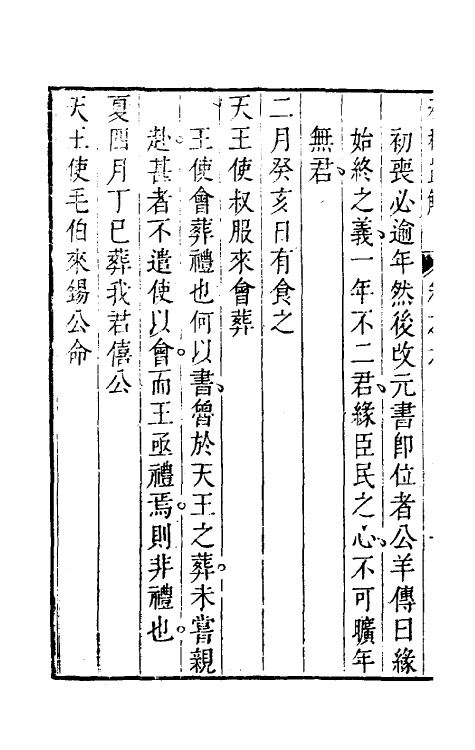 初喪必逾年然後改元書卽位者公羊傳曰緣
始終之義一年不二君緣臣民之心不可曠年
無君
二月癸亥日有食之
天王使叔服來會葬
王使會葬禮也何以書魯於天王之葬未嘗親
赴甚者不遣使以會而王亟禮焉則非禮也
夏四月丁巳葬我君僖公
天王使毛伯來錫公命